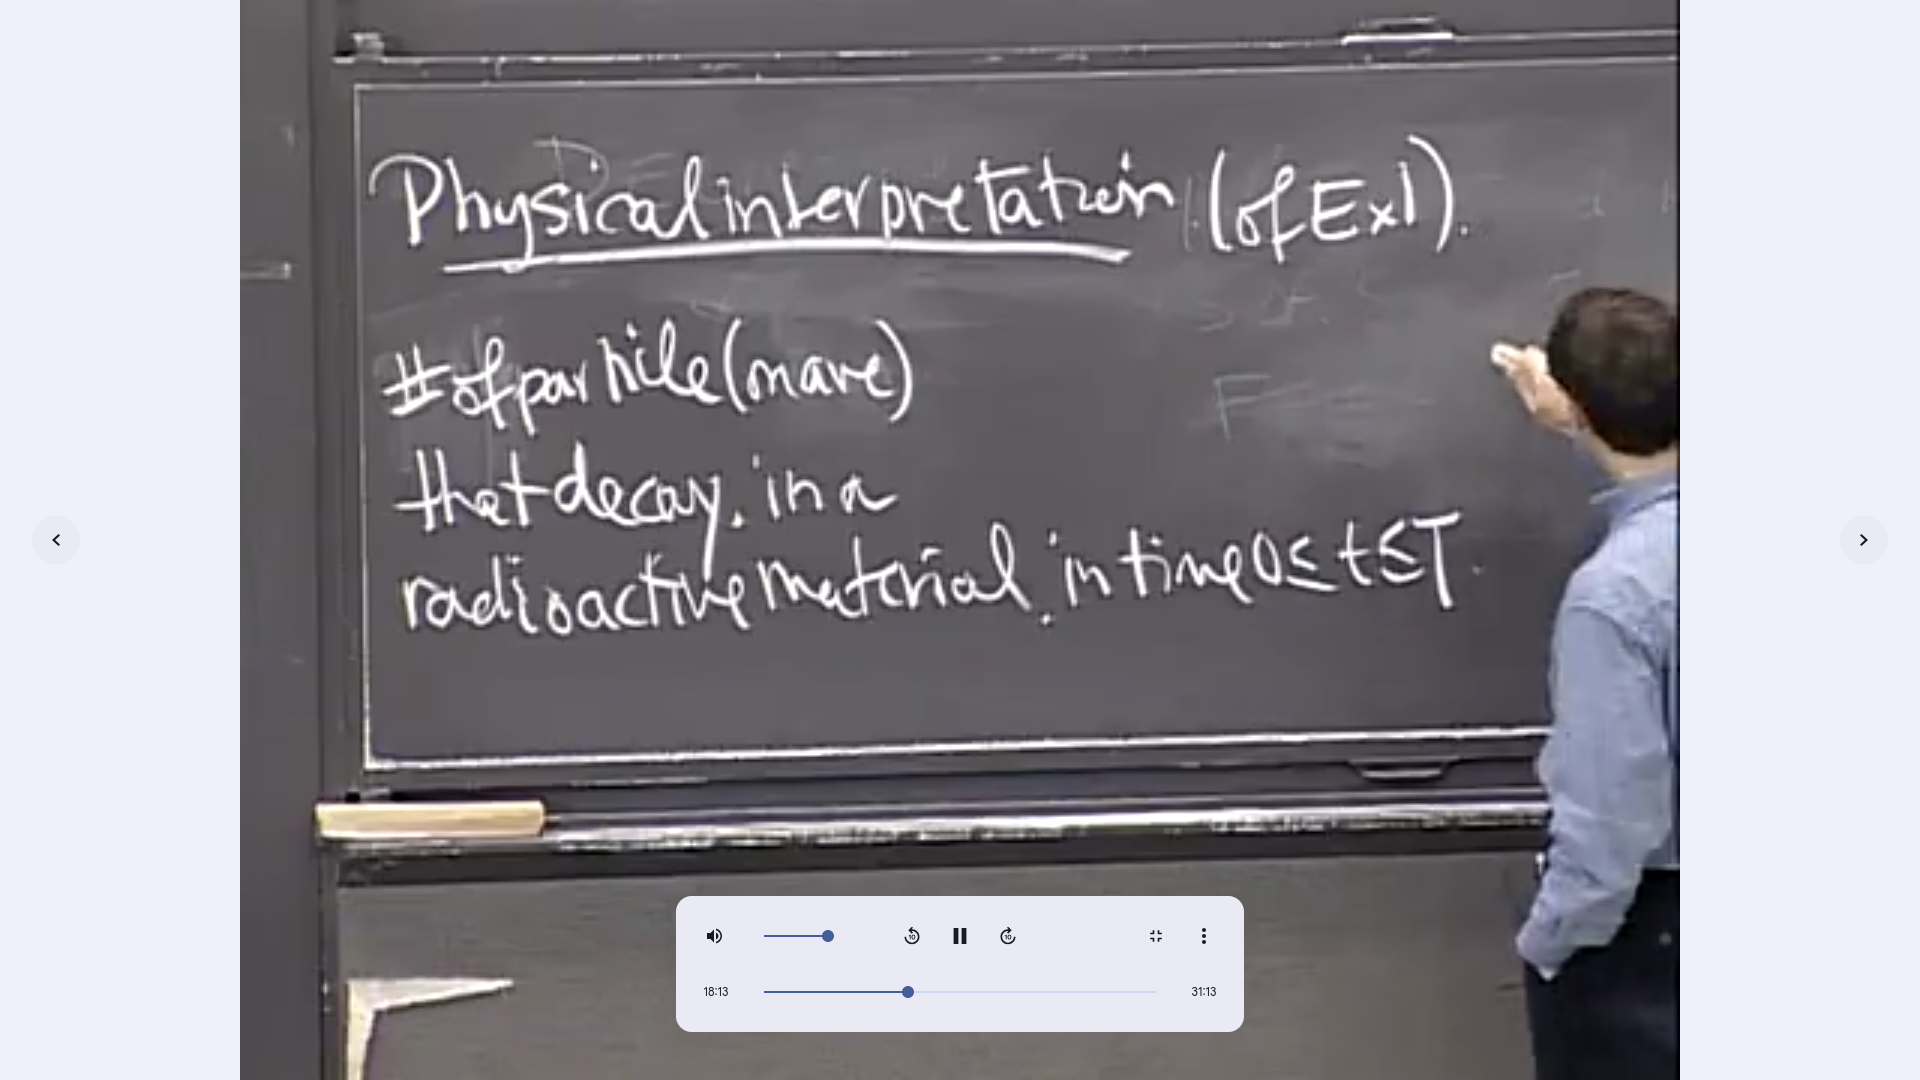 Physical interpretation (of Ex 1).
# of particle (on ave)
that decay in a
radioactive material in time 0 ≤ t ≤ T.
18:13
31:13